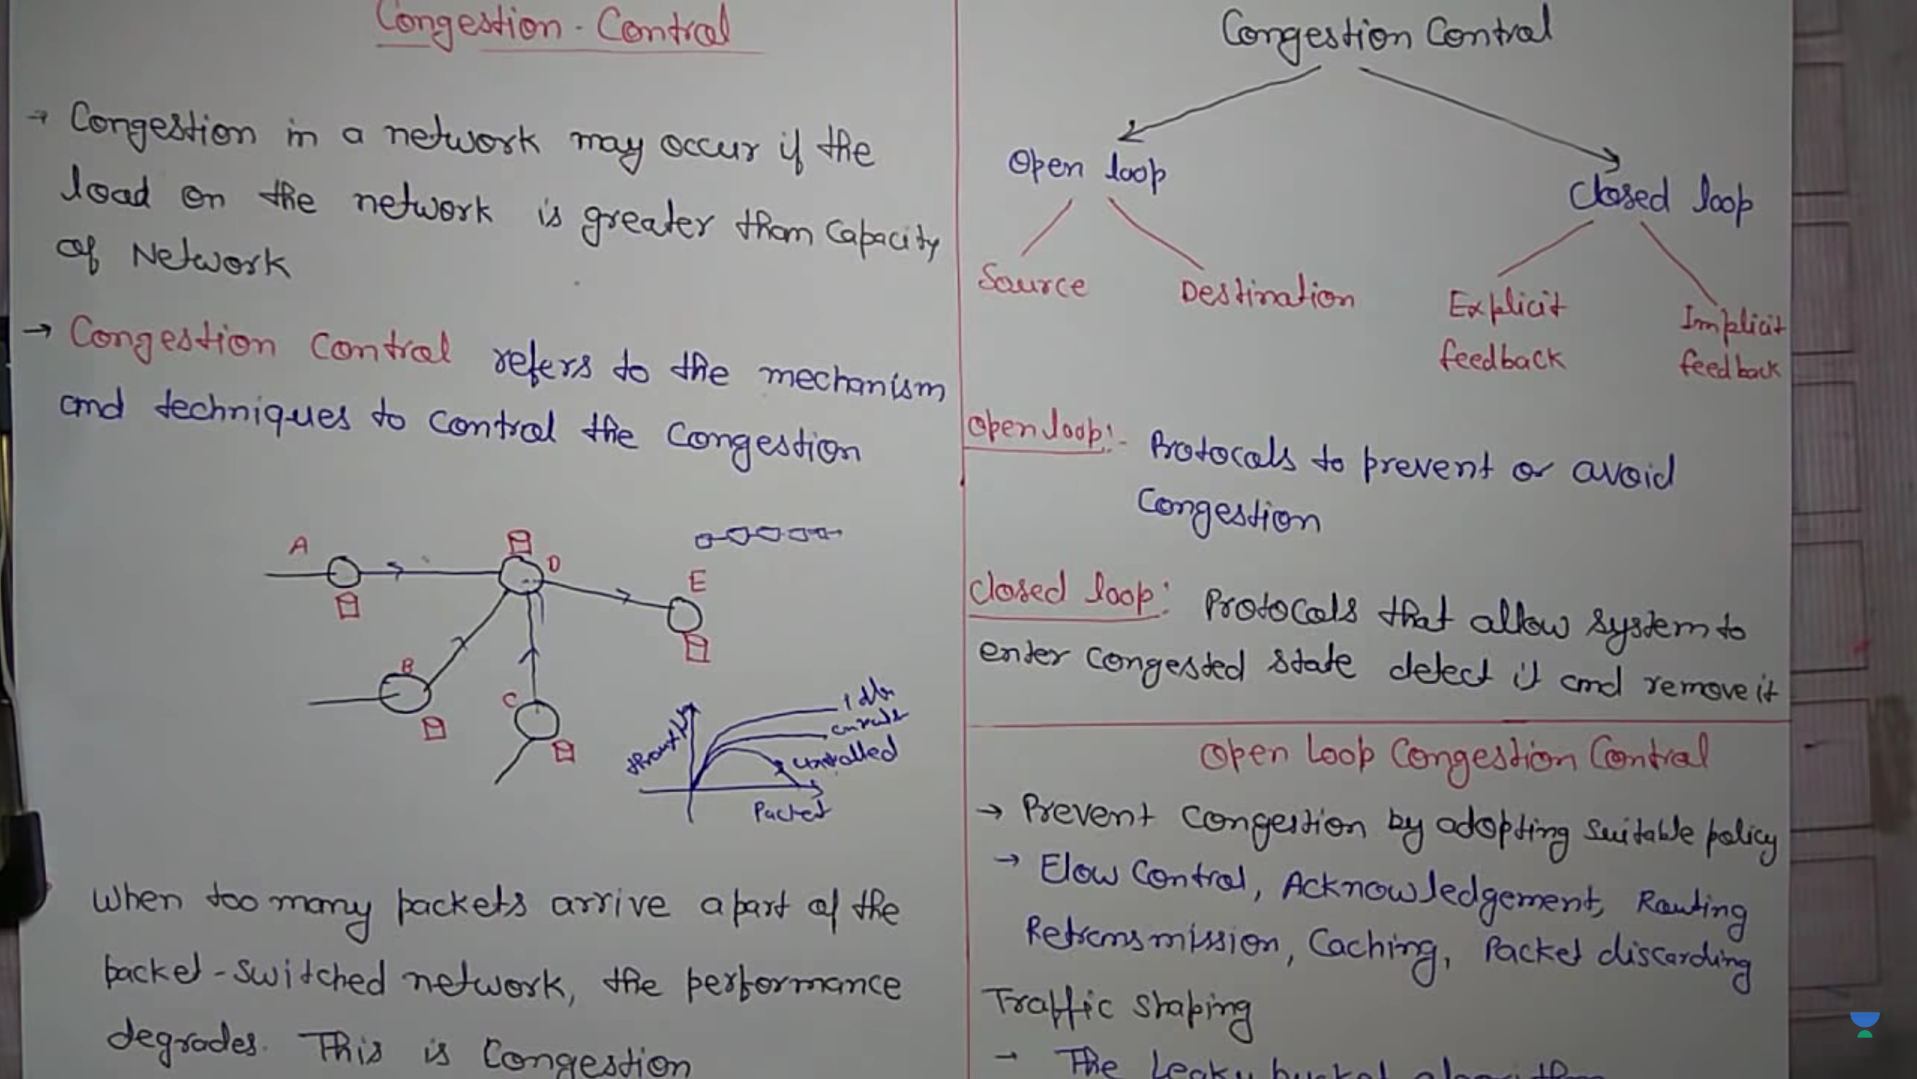 Congestion - Control
→ Congestion in a network may occur if the
load on the network is greater than capacity
of Network
→ Congestion Control refers to the mechanism
and techniques to control the congestion
A
D
E
B
C
Packet
when too many packets arrive a part of the
packet-switched network, the performance
degrades. This is Congestion
Congestion Control
Open loop
Closed loop
Source
Destination
Explicit
feedback
Implicit
feedback
open loop:- Protocals to prevent or avoid
Congestion
Closed loop: Protocals that allow system to
enter congested state detect it and remove it
Open Loop Congestion Control
→ Prevent Congestion by adopting suitable policy
→ Flow Control, Acknowledgement, Routing
Retransmission, Caching, Packet discarding
Traffic shaping
→ The Leaky bucket algorithm